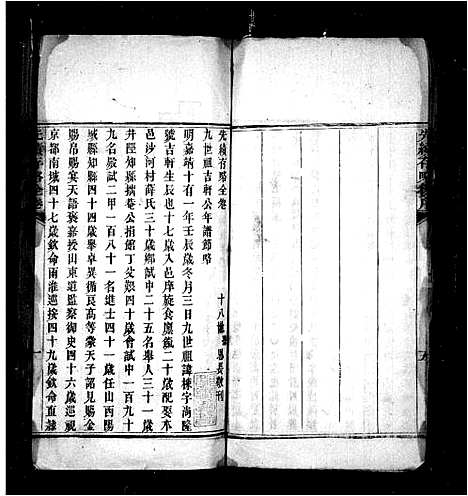 先續存略全卷
九世祖吉軒公年譜節略
十八世 恩長敬刊
明嘉靖十一年壬辰歲冬月三日九世祖諱棟字尚隆
號吉軒生辰也十七歲入邑庠旋食廩餼二十歲配娶本
邑沙河村薛氏三十歲鄉試中二十五名舉人三十一歲
井陘知縣 公捐館丁父艱四十歲會試中一百九十
九名殿試二甲一百八十一名進士四十一歲任山西陽
城縣知縣四十四歲舉卓異循良高等蒙天子詔見賜金
賜帛賜宴天語褒嘉授山東道監察御史四十六歲巡視
京都南城四十七歲欽命兩淮巡按四十九歲欽命直隸